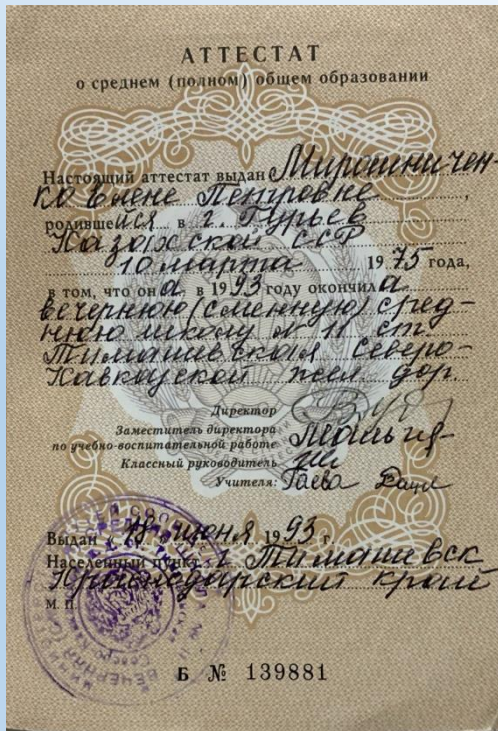 АТТЕСТАТ
о среднем (полном) общем образовании
Настоящий аттестат выдан Мирошничен-
ко Елене Петровне,
родившейся в г. Гурьев
Казахской ССР
10 марта 1975 года,
в том, что она в 1993 году окончила
вечернюю (сменную) сред-
нюю школу № 11 ст.
Тимашевская Северо-
Кавказской жел. дор.
Директор
Заместитель директора
по учебно-воспитательной работе
Классный руководитель
Учителя: Гаева
Выдан « июня 1993 г.
Населенный пункт г. Тимашевск
Краснодарский край
М. П.
Б № 139881